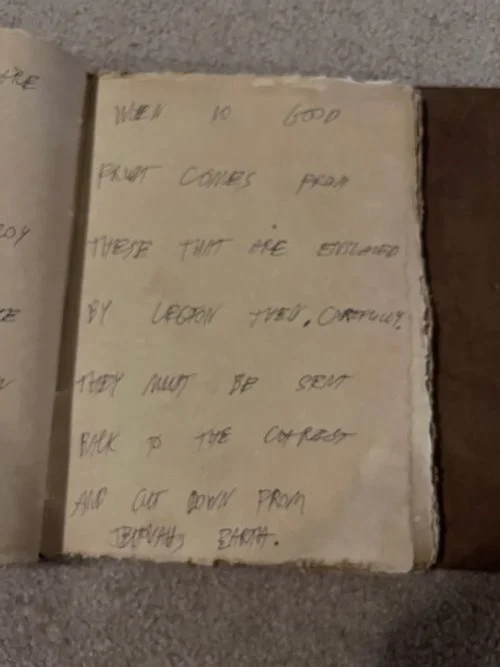 ARE
WHEN NO GOOD
FRUIT COMES FROM
THESE THAT ARE ENSLAVED
BY LEGION THEN, CAREFULLY.
THEY MUST BE SENT
BACK TO THE CHRIST
AND CUT DOWN FROM
JEHOVAHS EARTH.